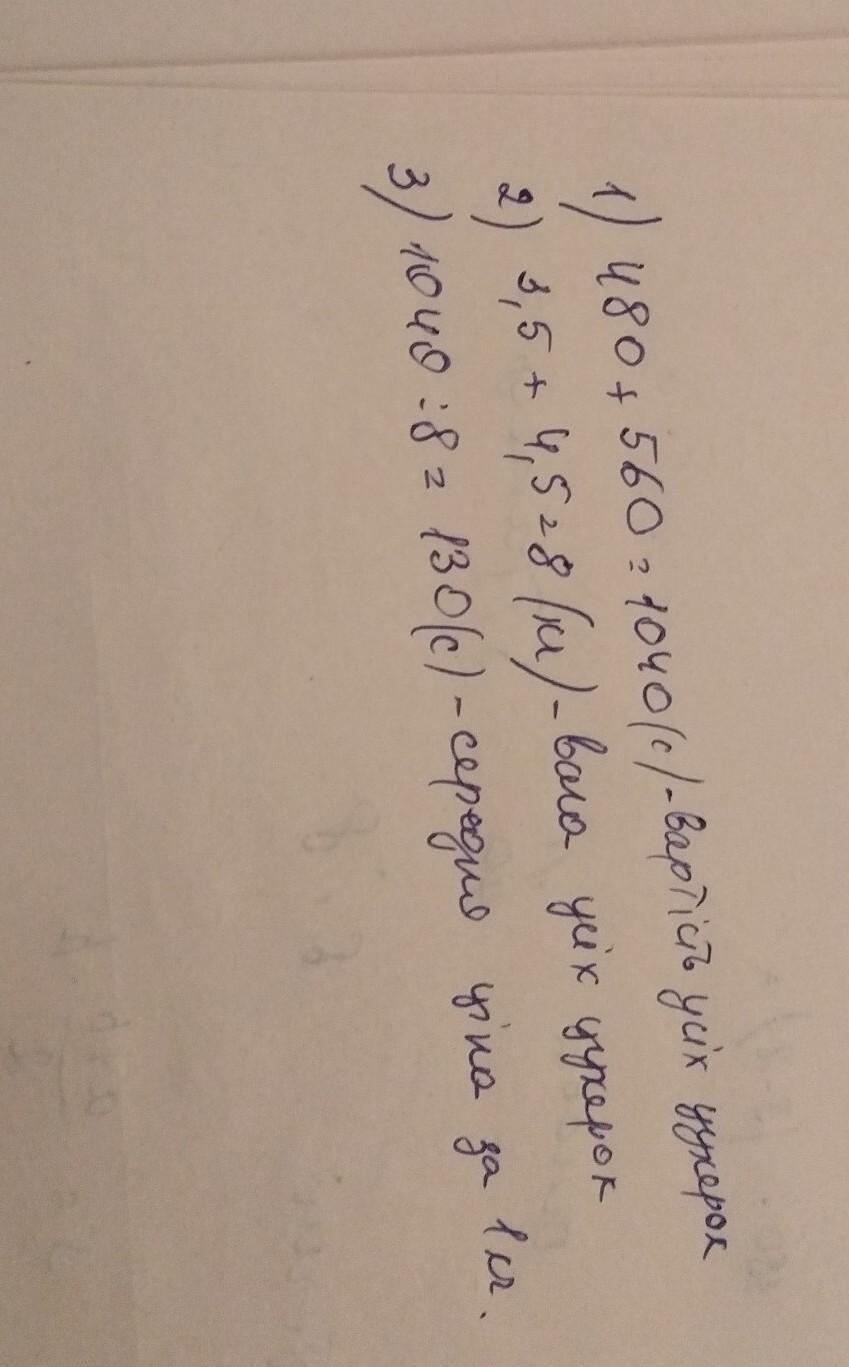 1) 480 + 560 = 1040 (с) - вартість усіх цукерок
2) 3,5 + 4,5 = 8 (кг) - вага усіх цукерок
3) 1040 : 8 = 130 (с) - середня ціна за 1 кг.